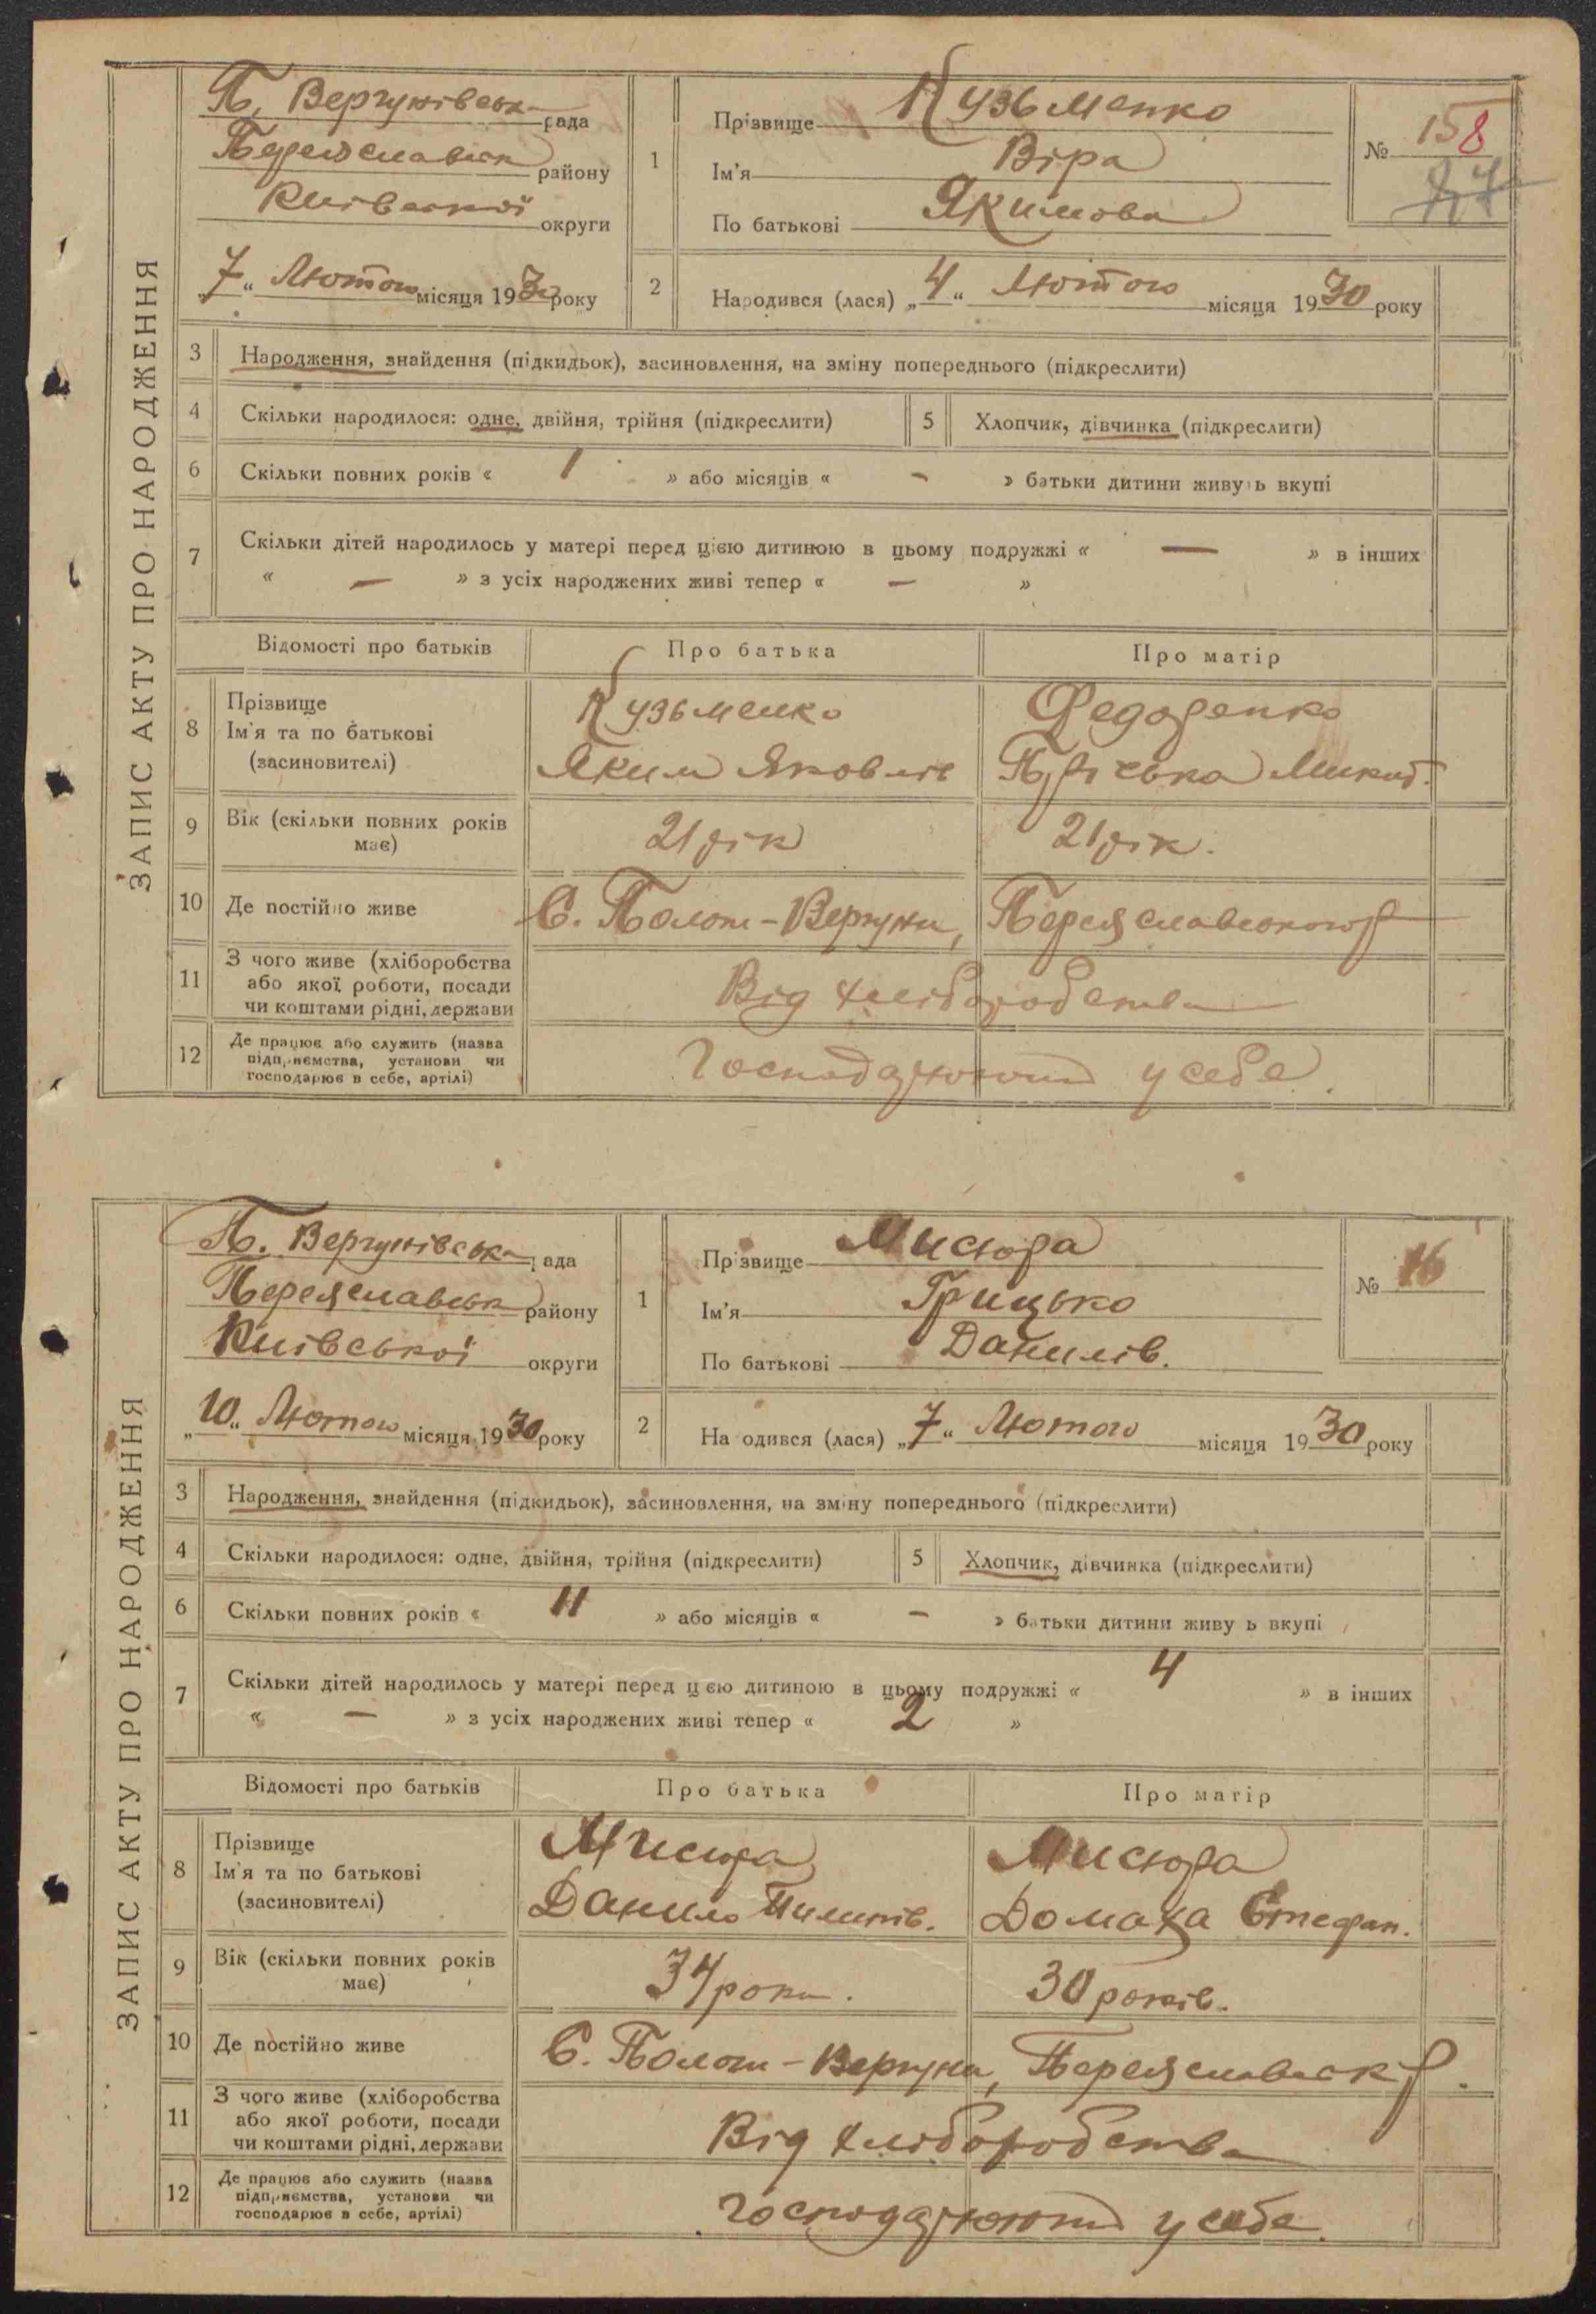 ЗАПИС АКТУ ПРО НАРОДЖЕННЯ
П. Вергунівськ рада
Переяславськ району
Київської округи
„7“ Лютого місяця 1930 року
1 Прізвище Кузьменко
Ім'я Віра
По батькові Якимова
№ 15 8
2 Народився (лася) „4“ Лютого місяця 1930 року
3 Народження, знайдення (підкидьок), засиновлення, на зміну попереднього (підкреслити)
4 Скільки народилося: одне, двійня, трійня (підкреслити) 5 Хлопчик, дівчинка (підкреслити)
6 Скільки повних років « 1 » або місяців « - » батьки дитини живуть вкупі
7 Скільки дітей народилось у матері перед цією дитиною в цьому подружжі « — » в інших
« — » з усіх народжених живі тепер « — »
Відомості про батьків Про батька Про матір
8 Прізвище Кузьменко Федоренко
Ім'я та по батькові Яким Яковлів Пріська Микит.
(засиновителі)
9 Вік (скільки повних років має) 21 рік 21 рік.
10 Де постійно живе С. Полог-Вергуни, Переяславського р
11 З чого живе (хліборобства
або якої роботи, посади
чи коштами рідні, держави Від хліборобства
12 Де працює або служить (назва
підприємства, установи чи
господарює в себе, артілі) Господарюють у себе.
ЗАПИС АКТУ ПРО НАРОДЖЕННЯ
П. Вергунівськ рада
Переяславськ району
Київської округи
„10“ Лютого місяця 1930 року
1 Прізвище Мисюра
Ім'я Грицько
По батькові Данилів.
№ 16
2 Народився (лася) „7“ Лютого місяця 1930 року
3 Народження, знайдення (підкидьок), засиновлення, на зміну попереднього (підкреслити)
4 Скільки народилося: одне, двійня, трійня (підкреслити) 5 Хлопчик, дівчинка (підкреслити)
6 Скільки повних років « 11 » або місяців « - » батьки дитини живуть вкупі
7 Скільки дітей народилось у матері перед цією дитиною в цьому подружжі « 4 » в інших
« — » з усіх народжених живі тепер « 2 »
Відомості про батьків Про батька Про матір
8 Прізвище Мисюра Мисюра
Ім'я та по батькові Данило Пилипів. Домаха Стефан.
(засиновителі)
9 Вік (скільки повних років має) 34 роки. 30 років.
10 Де постійно живе С. Полог-Вергуни, Переяславськ р.
11 З чого живе (хліборобства
або якої роботи, посади
чи коштами рідні, держави Від хліборобства
12 Де працює або служить (назва
підприємства, установи чи
господарює в себе, артілі) Господарюють у себе.